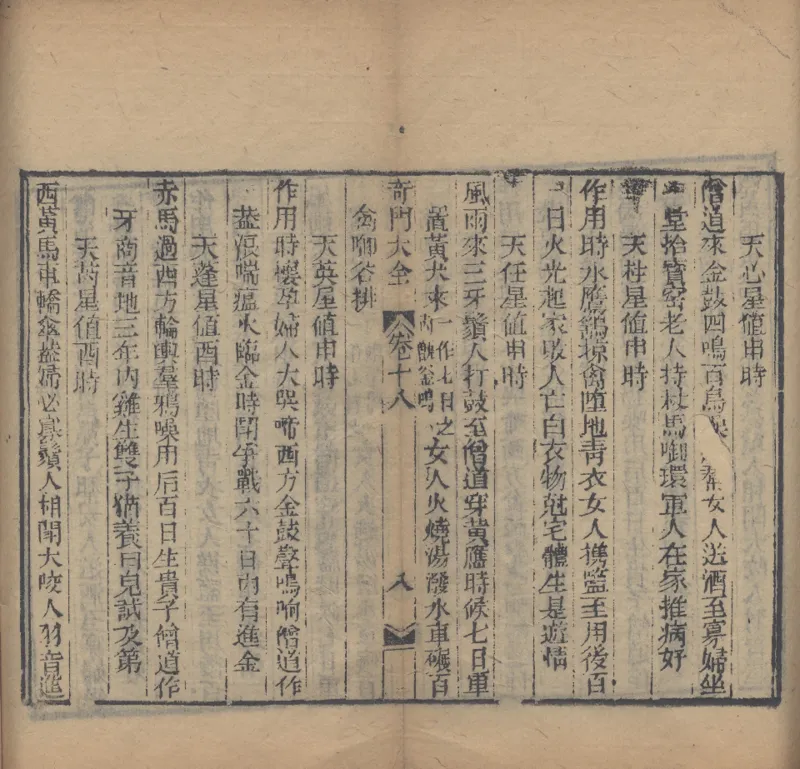 天心星值申時
僧道來金鼓四鳴百鳥 女人送酒至寡婦坐
堂拾寶窖老人持杖馬啣環軍人在家推病好
天柱星值申時
作用時水鷹鷂掠禽墮地青衣女人携籃至用後百
日火光起家敗人亡白衣物尅宅體生是遊情
天任星值申時
風雨來三牙鬚人打鼓至僧道穿黃應時候七日軍
置黃犬來一作七日之內飯釜鳴女人火燒湯潑水車碾百
奇門大全 卷十八 八
禽啣谷拼
天英星值申時
作用時懷孕婦人大哭啼西方金鼓聲鳴响僧道作
蓋浪喘瘟火臨金時鬥爭戰六十日內有進金
天蓬星值酉時
赤馬過西方輪輿羣鴉噪用后百日生貴子僧道作
牙商音地三年內雞生雙子猶養曰兒誠及第
天芮星值酉時
西黃馬車轎傘蓋婦必 鬚人相鬧犬咬人羽音進